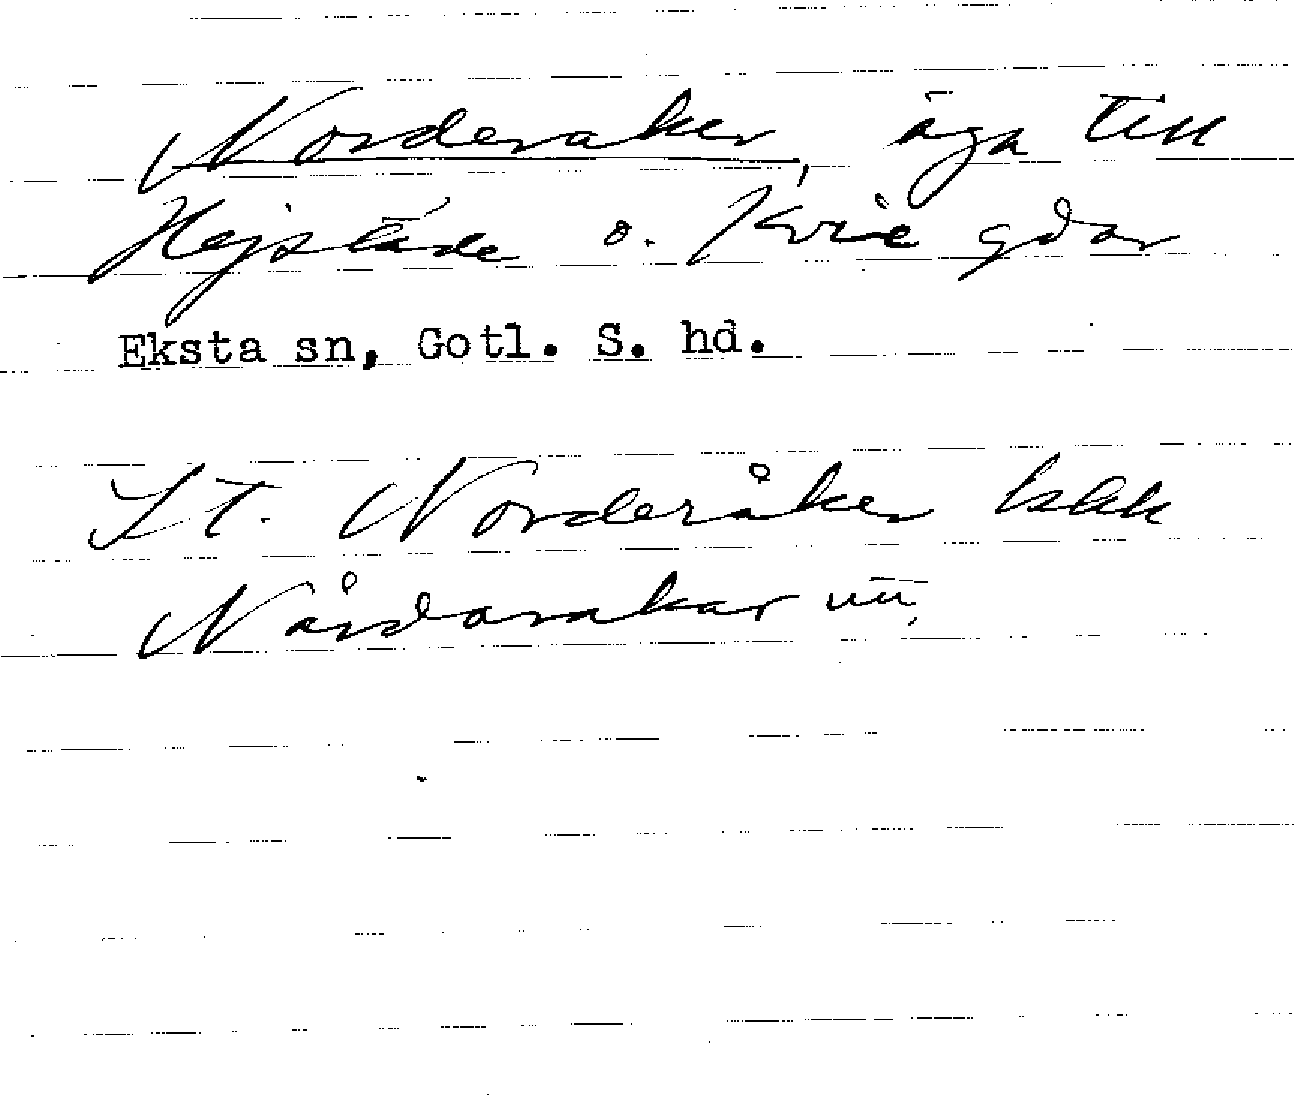 Norderaker, äga till
Hejsläde o. Kvie gdar
Eksta sn, Gotl. S. hd.
Lt. Norderåker
Nårdarakar